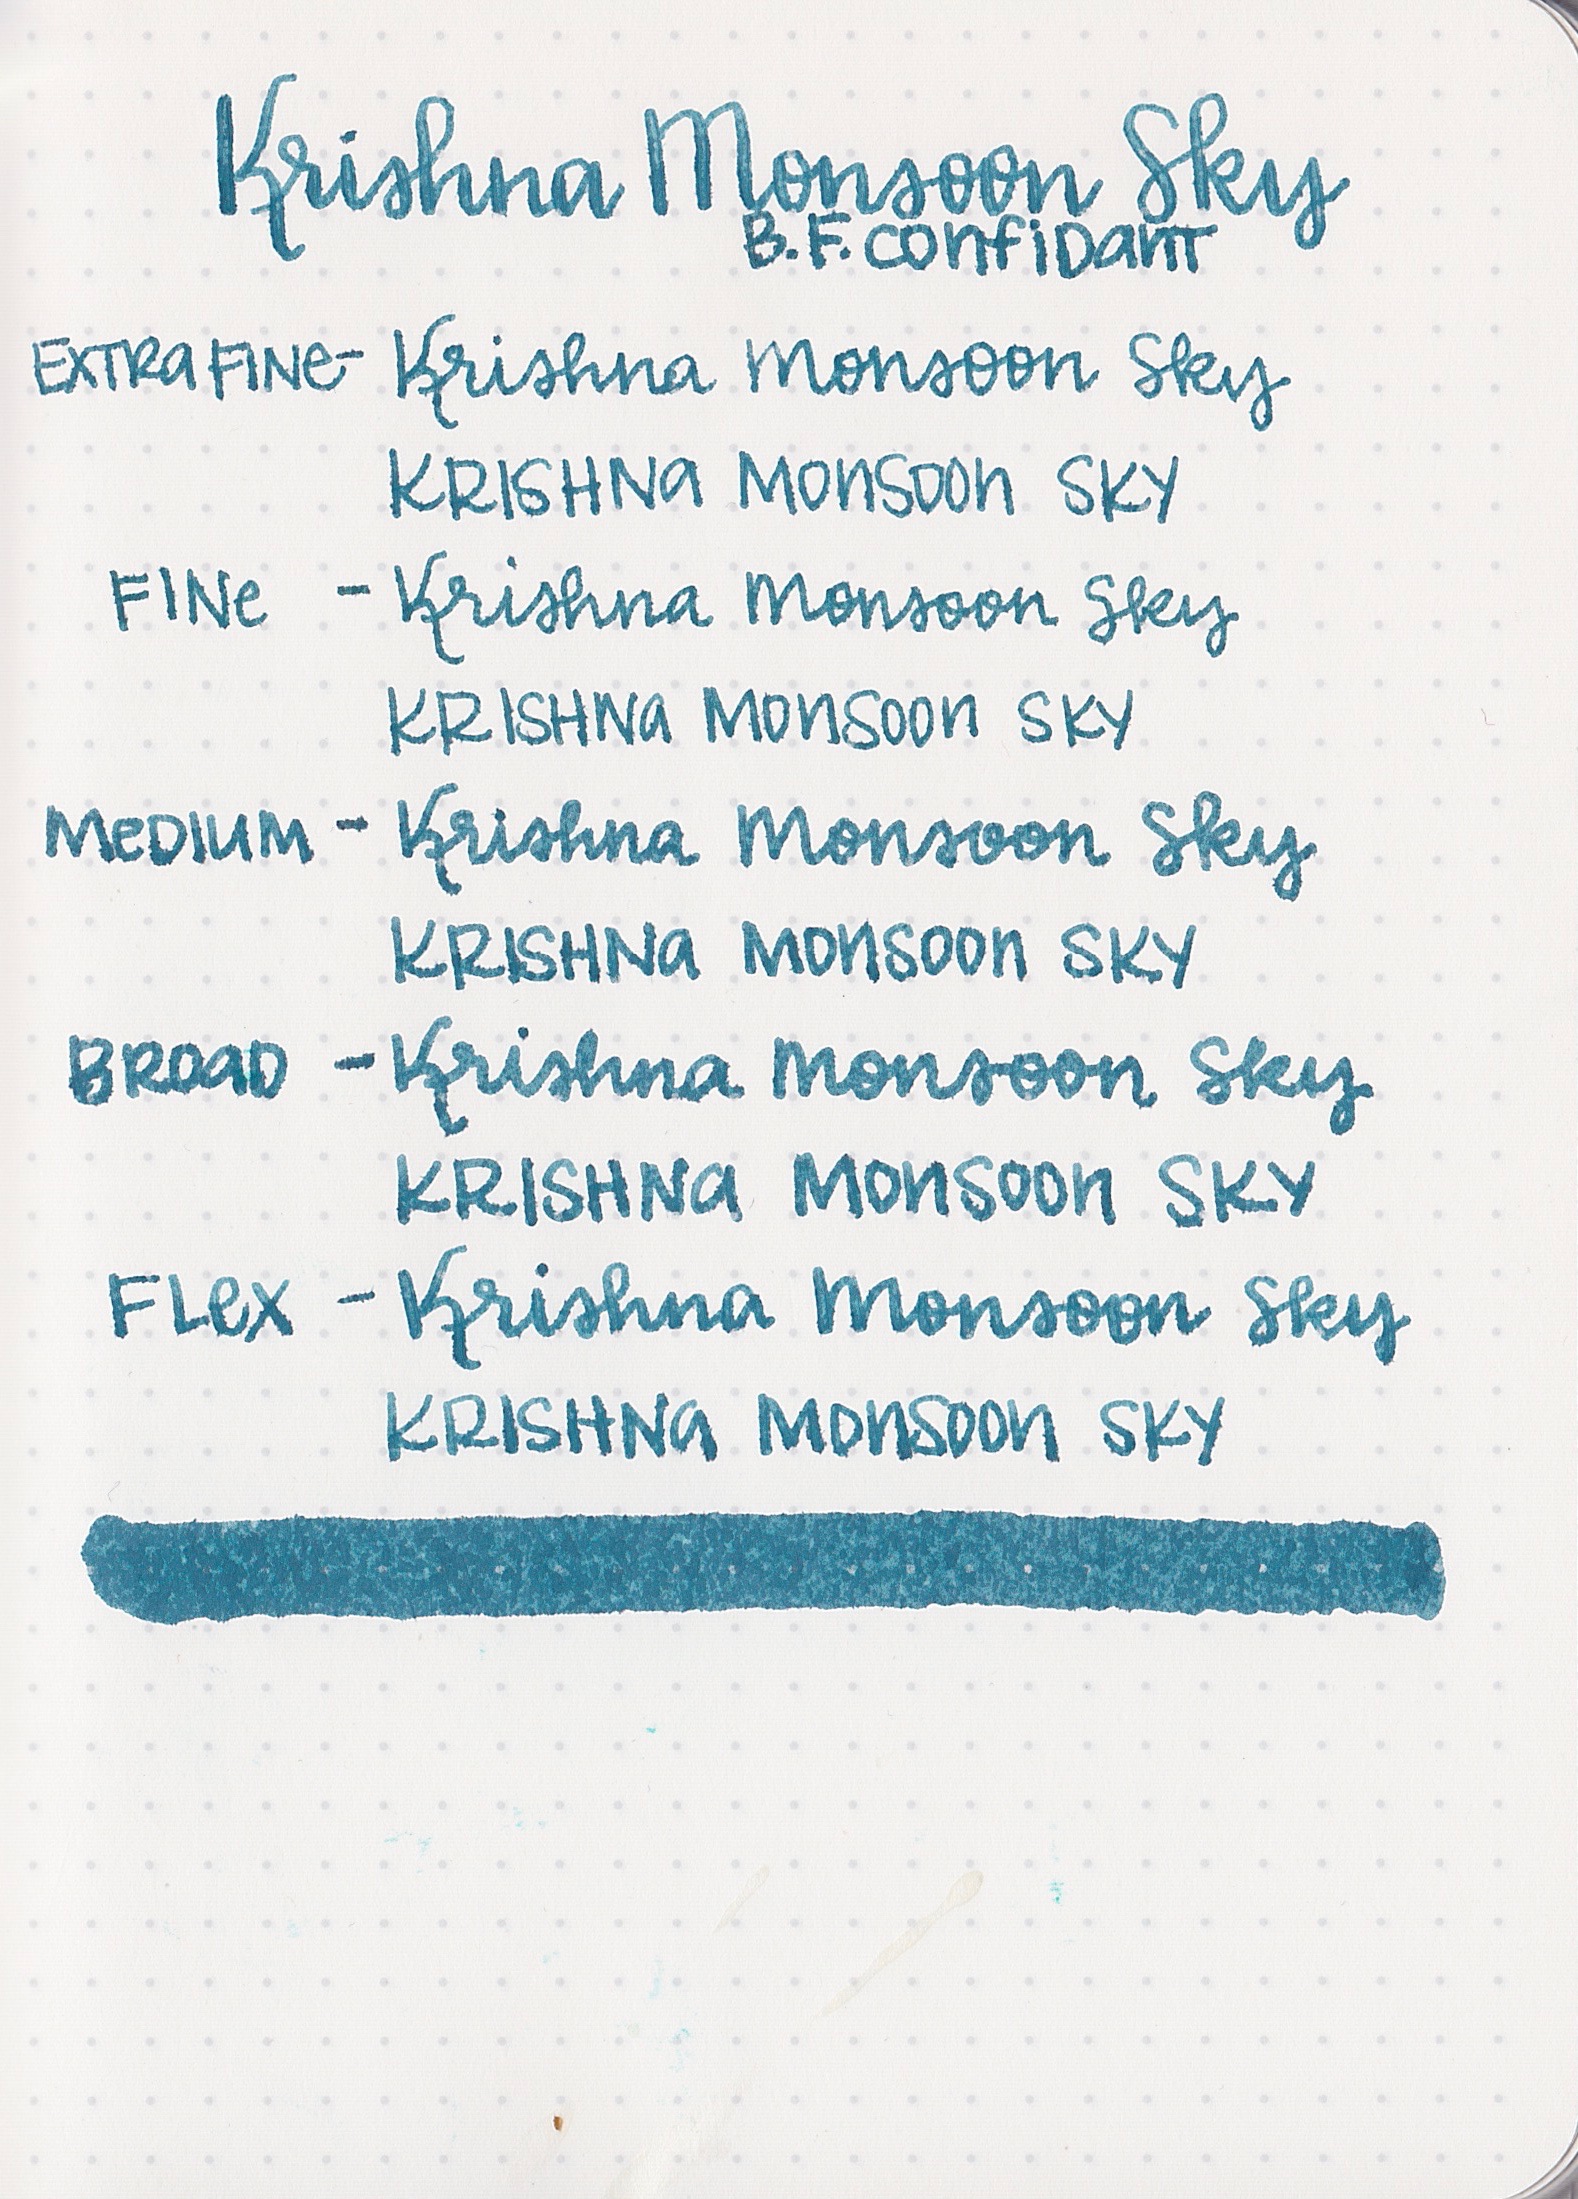 Krishna Monsoon Sky
B.F. Confidant
Extra Fine - Krishna Monsoon Sky
KRISHNA MONSOON SKY
Fine - Krishna Monsoon Sky
KRISHNA MONSOON SKY
Medium - Krishna Monsoon Sky
KRISHNA MONSOON SKY
Broad - Krishna Monsoon Sky
KRISHNA MONSOON SKY
Flex - Krishna Monsoon Sky
KRISHNA MONSOON SKY